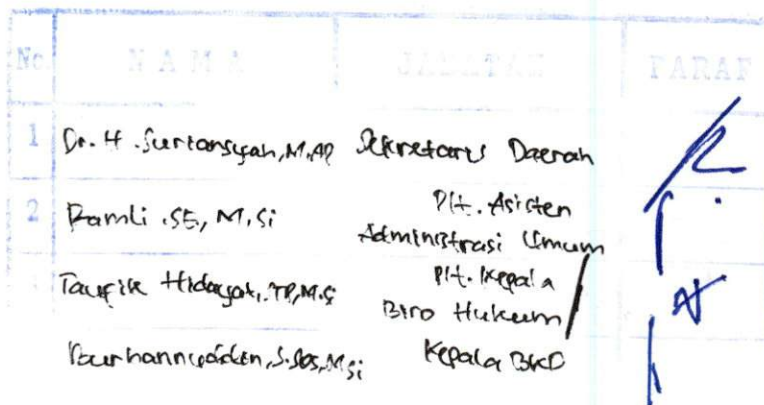 No. NAMA JABATAN PARAF
1 Dr. H. Suriansyah, M.AP Sekretaris Daerah
2 Ramli, SE, M.Si Plt. Asisten
Administrasi Umum
Taufik Hidayat, TP, M.Si Plt. Kepala
Biro Hukum
Burhannudin, S.Sos, M.Si Kepala BKD